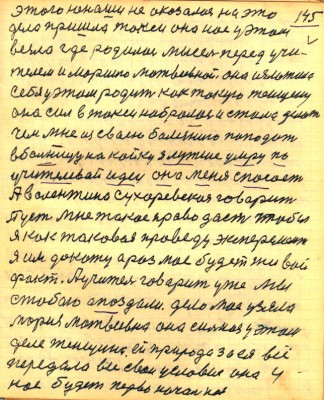 этого юноши не оказалося на это 145
дело пришла такси она нас у этом
везла где родился мисея перед учи-
телем и мариию матвеевной. она изъятила
себя у этом родит как такую женщину
она сил в такси набралося и стала думать
чем мне из своею болезнию попадат
в больницу на койку я лутше умру по
учителевай идеи она меня спасает
А валентина Сухаревская говарит
Пуст мне такое право даст чтобы
я как таковая проведу эксперемент
я им докажу а раз мое будет жи вой
факт. А учител говарит уже мы
стобою апоздали. дело мое узяла
мария матвеевна она силная у этом
деле женщина, ей природа за ся всё
передала все свои условие она у
нас будет перво начал ная